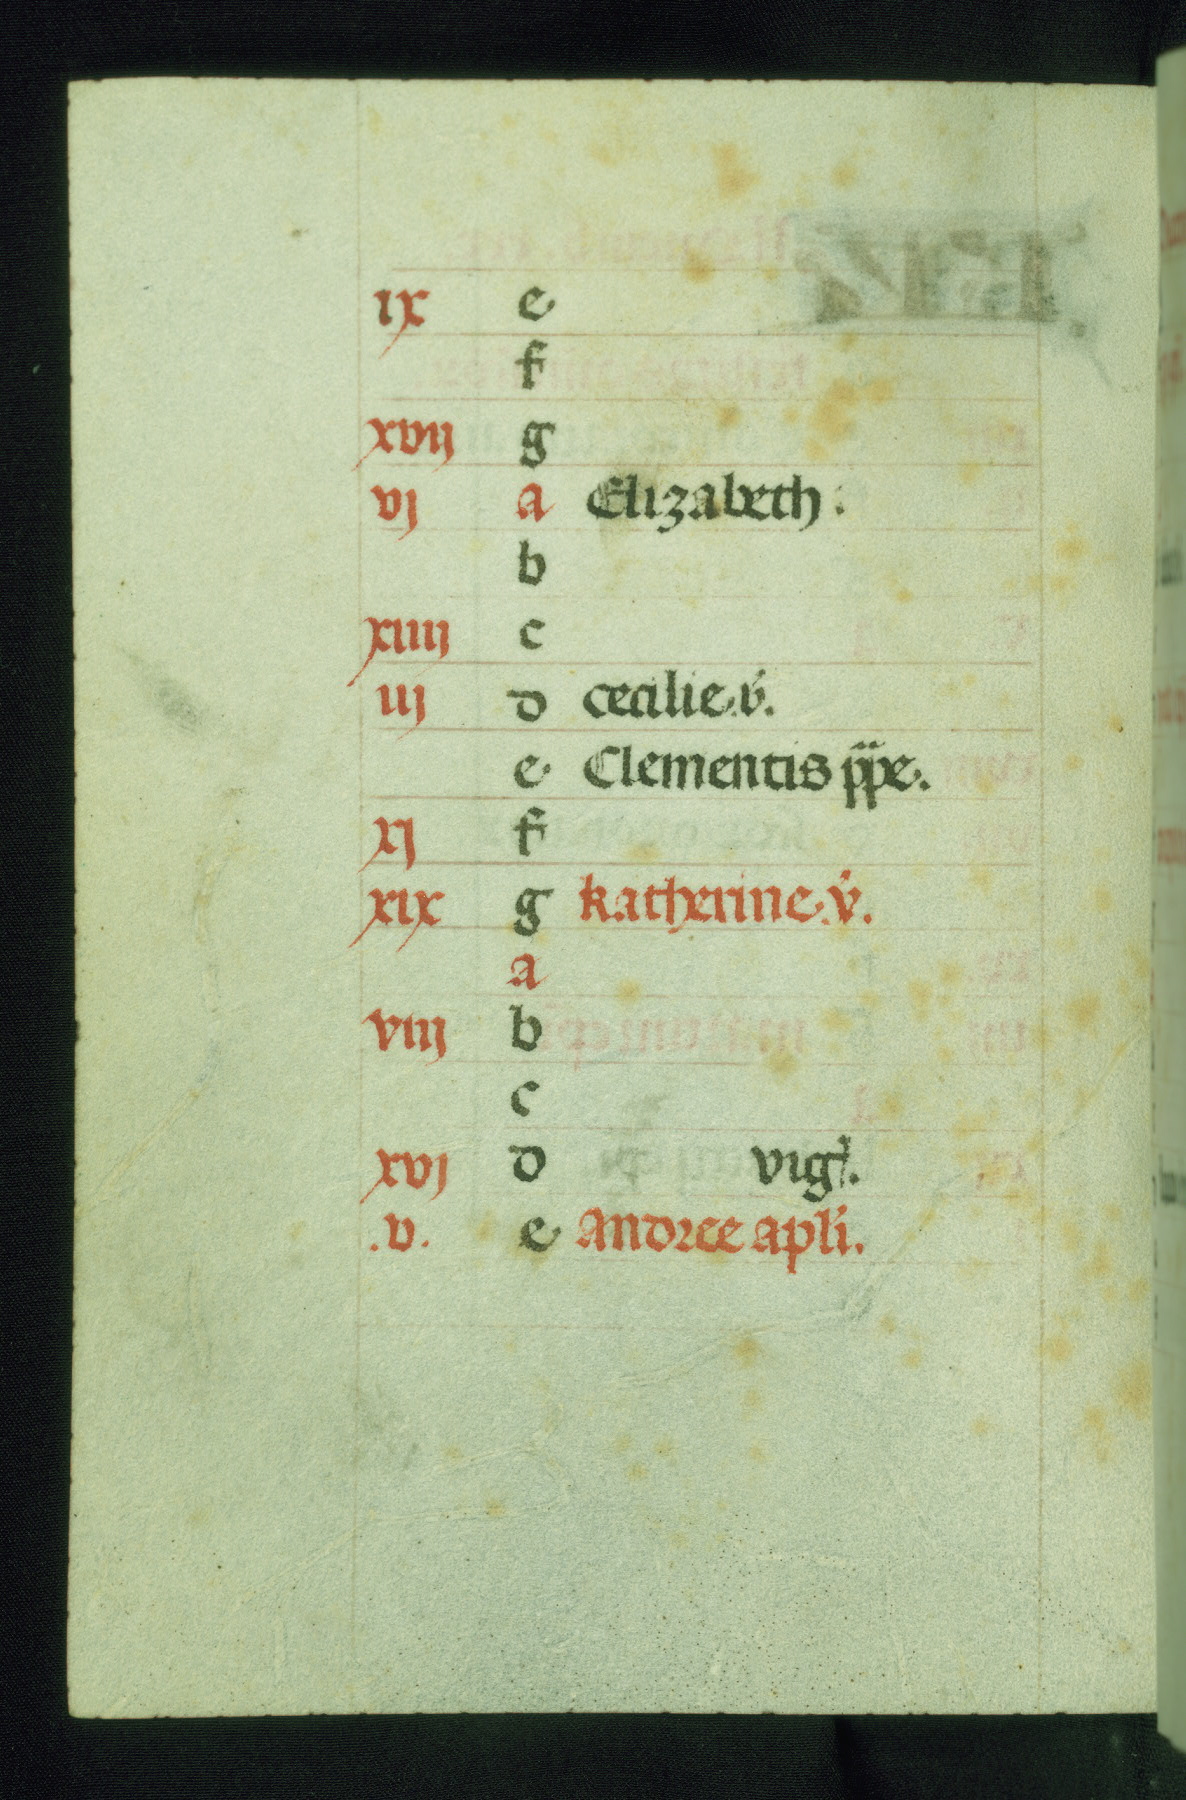 ix e
f
xvij g
vj a Elizabeth :
b
xiiij c
iij d cecilie. v̾.
e Clementis p̄p̄e.
xj f
xix g katherine. v̾.
a
viij b
c
xvj d vigł.
.v. e Andree apłi.